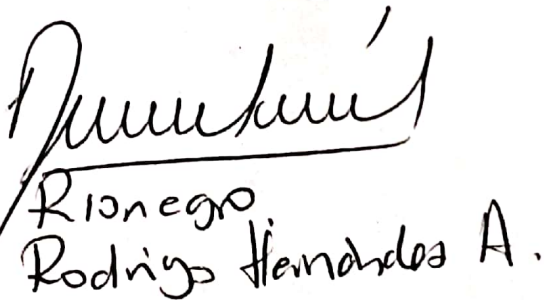 Rionegro
Rodrigo Hernández A.